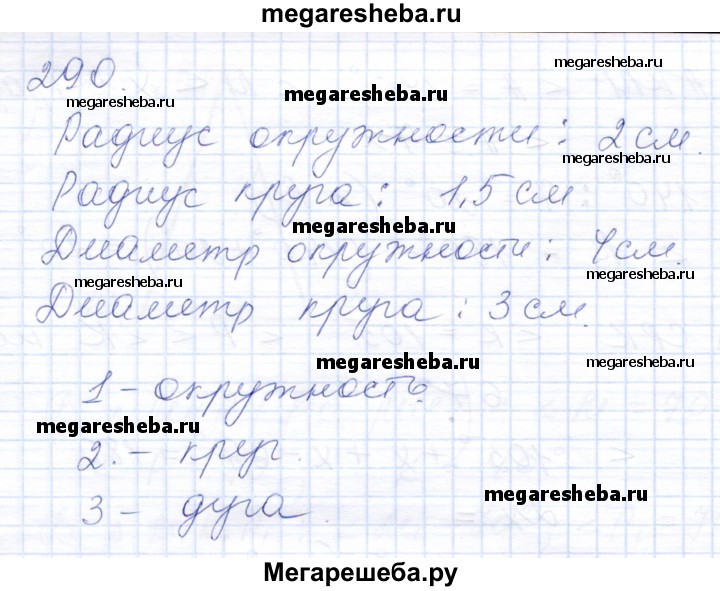 megaresheba.ru
290.
megaresheba.ru
megaresheba.ru
megaresheba.ru
Радиус окружности: 2 см.
megaresheba.ru
Радиус круга: 1,5 см.
megaresheba.ru
Диаметр окружности: 4 см.
megaresheba.ru
megaresheba.ru
Диаметр круга: 3 см.
megaresheba.ru
megaresheba.ru
1 - окружность
megaresheba.ru
2. - круг.
megaresheba.ru
3 - дуга.
Мегарешеба.ру